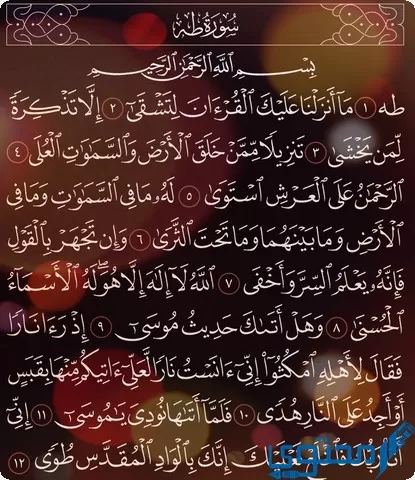 سُورَةُ طه
بِسْمِ ٱللَّهِ ٱلرَّحْمَٰنِ ٱلرَّحِيمِ
طه ١ مَآ أَنزَلْنَا عَلَيْكَ ٱلْقُرْءَانَ لِتَشْقَىٰٓ ٢ إِلَّا تَذْكِرَةً
لِّمَن يَخْشَىٰ ٣ تَنزِيلًا مِّمَّنْ خَلَقَ ٱلْأَرْضَ وَٱلسَّمَٰوَٰتِ ٱلْعُلَى ٤
ٱلرَّحْمَٰنُ عَلَى ٱلْعَرْشِ ٱسْتَوَىٰ ٥ لَهُۥ مَا فِى ٱلسَّمَٰوَٰتِ وَمَا فِى
ٱلْأَرْضِ وَمَا بَيْنَهُمَا وَمَا تَحْتَ ٱلثَّرَىٰ ٦ وَإِن تَجْهَرْ بِٱلْقَوْلِ
فَإِنَّهُۥ يَعْلَمُ ٱلسِّرَّ وَأَخْفَى ٧ ٱللَّهُ لَآ إِلَٰهَ إِلَّا هُوَ لَهُ ٱلْأَسْمَآءُ
ٱلْحُسْنَىٰ ٨ وَهَلْ أَتَىٰكَ حَدِيثُ مُوسَىٰٓ ٩ إِذْ رَءَا نَارًا
فَقَالَ لِأَهْلِهِ ٱمْكُثُوٓا۟ إِنِّىٓ ءَانَسْتُ نَارًا لَّعَلِّىٓ ءَاتِيكُم مِّنْهَا بِقَبَسٍ
أَوْ أَجِدُ عَلَى ٱلنَّارِ هُدًى ١٠ فَلَمَّآ أَتَىٰهَا نُودِىَ يَٰمُوسَىٰٓ ١١ إِنِّىٓ
أَنَا۠ رَبُّكَ فَٱخْلَعْ نَعْلَيْكَ إِنَّكَ بِٱلْوَادِ ٱلْمُقَدَّسِ طُوًى ١٢
محتوى